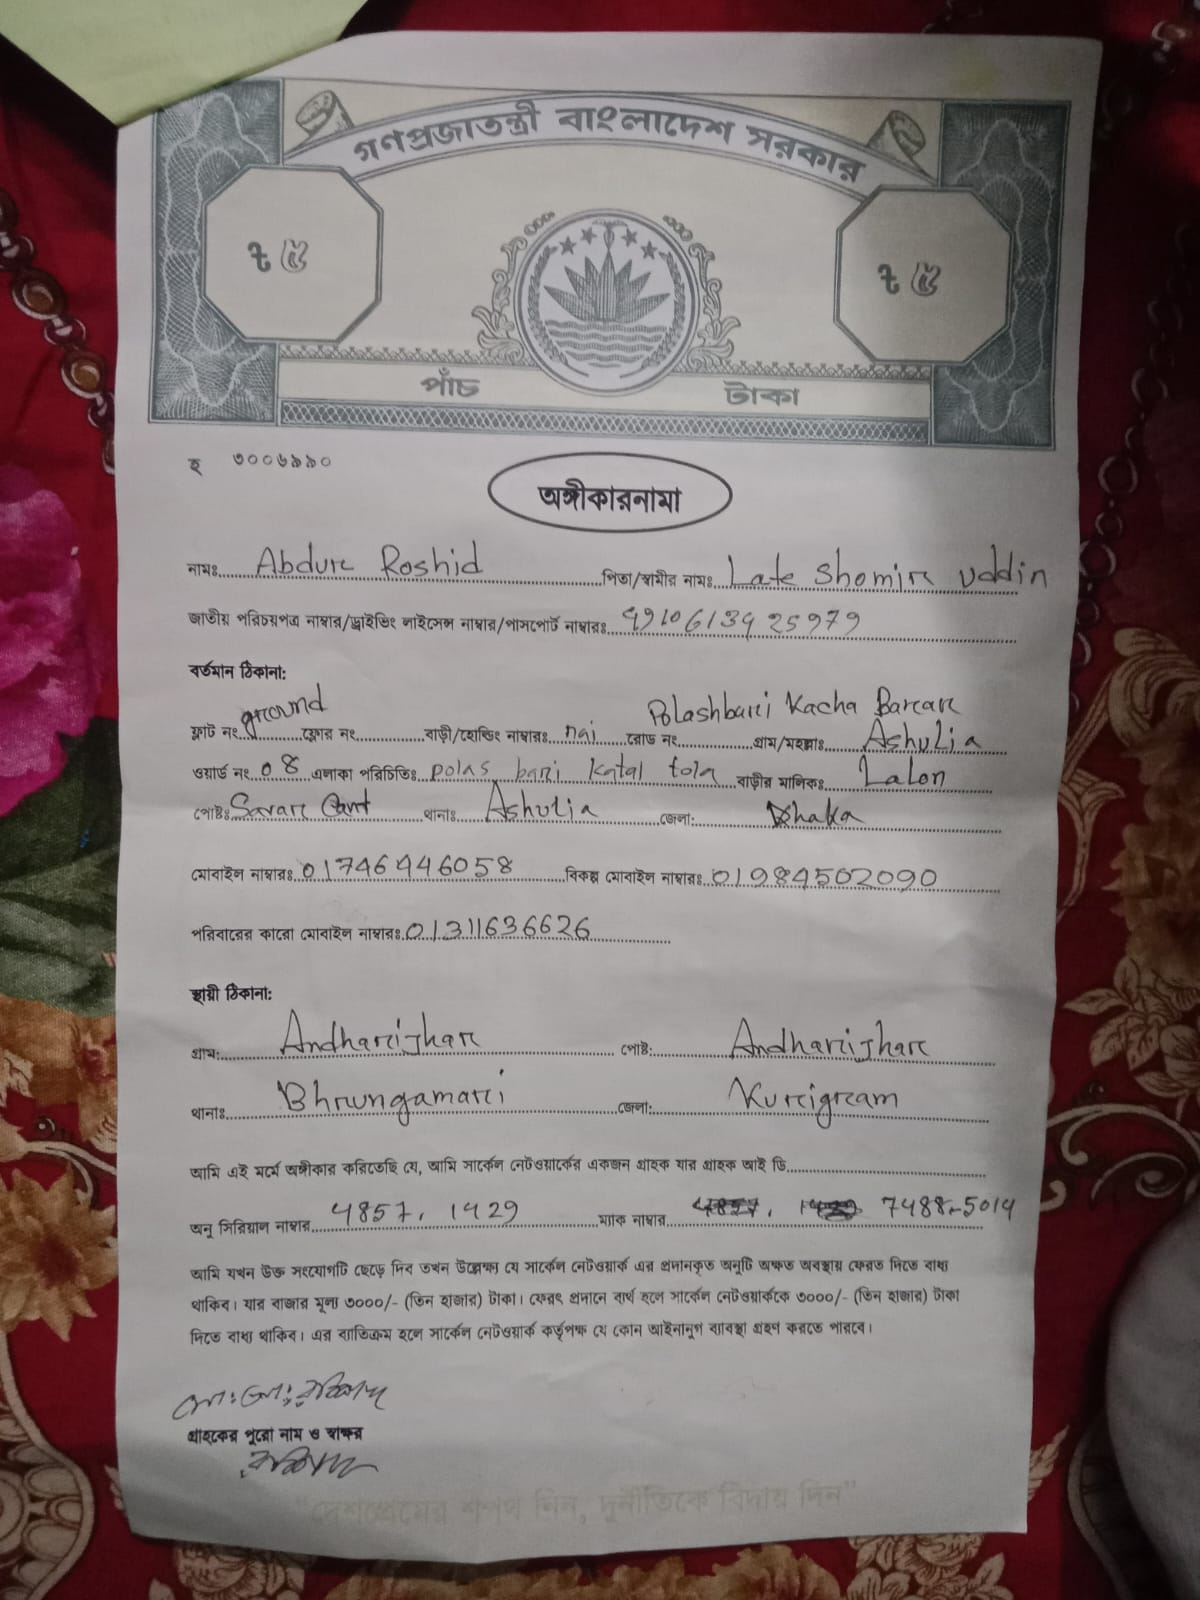 গণপ্রজাতন্ত্রী বাংলাদেশ সরকার
৳ ৫ ৳ ৫
পাঁচ টাকা
হ ৩০০৬৯৯০
অঙ্গীকারনামা
নামঃ Abdur Roshid পিতা/স্বামীর নামঃ Late Shomir Uddin
জাতীয় পরিচয়পত্র নাম্বার/ড্রাইভিং লাইসেন্স নাম্বার/পাসপোর্ট নাম্বারঃ
বর্তমান ঠিকানা:
ফ্লাট নং ground ফ্লোর নং বাড়ী/হোল্ডিং নাম্বারঃ nai রোড নং গ্রাম/মহল্লাঃ Polashbari Kacha Barar Ashulia
ওয়ার্ড নং 08 এলাকা পরিচিতিঃ polas bari katal tola বাড়ীর মালিকঃ Lalon
পোষ্টঃ Savar Cant থানাঃ Ashulia জেলা: Dhaka
মোবাইল নাম্বারঃ 01746446058 বিকল্প মোবাইল নাম্বারঃ 01984502090
পরিবারের কারো মোবাইল নাম্বারঃ 01311636626
স্থায়ী ঠিকানা:
গ্রাম: Andharijhar পোষ্ট: Andharijhar
থানাঃ Bhrungamari জেলা: Kurigram
আমি এই মর্মে অঙ্গীকার করিতেছি যে, আমি সার্কেল নেটওয়ার্কের একজন গ্রাহক যার গ্রাহক আই ডি
অনু সিরিয়াল নাম্বার 4857, 1429 ম্যাক নাম্বার 7488-5014
আমি যখন উক্ত সংযোগটি ছেড়ে দিব তখন উল্লেক্ষ্য যে সার্কেল নেটওয়ার্ক এর প্রদানকৃত অনুটি অক্ষত অবস্থায় ফেরত দিতে বাধ্য
থাকিব। যার বাজার মূল্য ৩০০০/- (তিন হাজার) টাকা। ফেরৎ প্রদানে ব্যর্থ হলে সার্কেল নেটওয়ার্ককে ৩০০০/- (তিন হাজার) টাকা
দিতে বাধ্য থাকিব। এর ব্যতিক্রম হলে সার্কেল নেটওয়ার্ক কর্তৃপক্ষ যে কোন আইনানুগ ব্যাবস্থা গ্রহণ করতে পারবে।
গ্রাহকের পুরো নাম ও স্বাক্ষর
"দেশপ্রেমের শপথ নিন, দুর্নীতিকে বিদায় দিন"